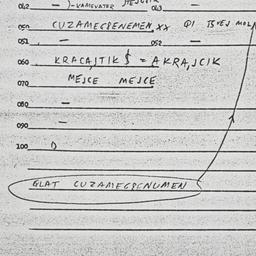 042 — )-VAMEVATER 043 —
050 CUZAMECPENEMEN, XX
051 — 052 —
060 KRACAJTIK $ = AKRAJCIK
070 MEJCE MEJCE
080 —
090 —
100 D
GLAT CUZAMECPENUMEN